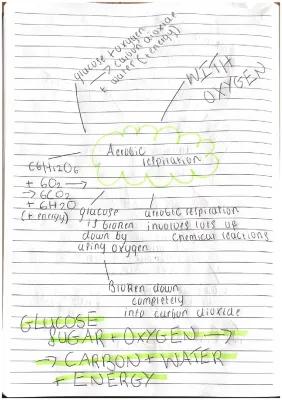 glucose + oxygen
→ carbon dioxide
+ water (+ energy)
WITH
OXYGEN
Aerobic
respiration
C6H12O6
+ 6O2 →
→ 6CO2
+ 6H2O
(+ energy)
glucose
is broken
down by
using oxygen
aerobic respiration
involves lots of
chemical reactions
Broken down
completely
into carbon dioxide
GLUCOSE
SUGAR + OXYGEN →
→ CARBON + WATER
+ ENERGY